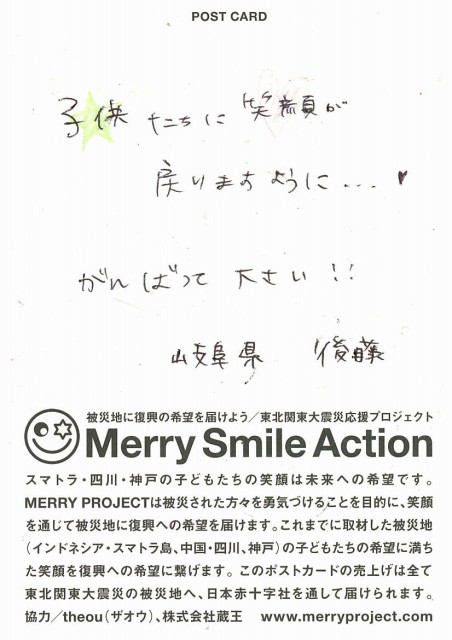 POST CARD
子供たちに 笑顔が
戻りますように... ♥
がんばって 下さい!!
岐阜県 後藤
被災地に復興の希望を届けよう/東北関東大震災応援プロジェクト
Merry Smile Action
スマトラ・四川・神戸の子どもたちの笑顔は未来への希望です。
MERRY PROJECTは被災された方々を勇気づけることを目的に、笑顔
を通じて被災地に復興への希望を届けます。これまでに取材した被災地
(インドネシア・スマトラ島、中国・四川、神戸)の子どもたちの希望に満ち
た笑顔を復興への希望に繋げます。このポストカードの売上げは全て
東北関東大震災の被災地へ、日本赤十字社を通して届けられます。
協力/theou(ザオウ)、株式会社蔵王 www.merryproject.com